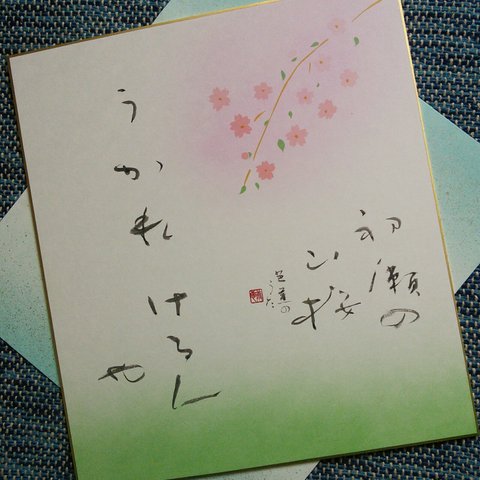 うかれ
ける人
や
初瀬の
山桜
芭蕉の
うた